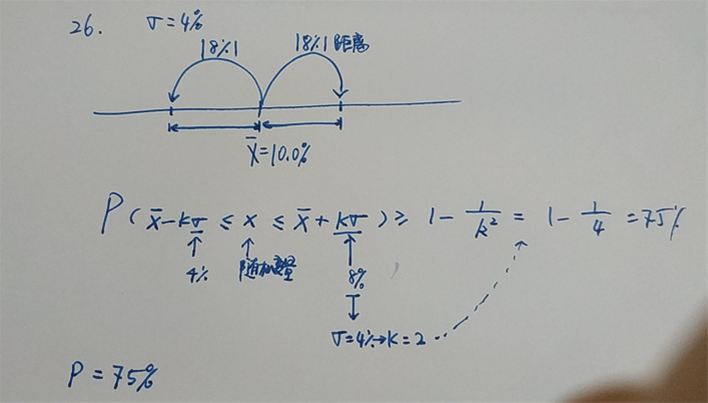 26. σ=4%
|8%| |8%| 距离
X̄=10.0%
P(x̄-kσ ≤ x ≤ x̄+kσ) ≥ 1 - 1/k² = 1 - 1/4 = 75%
4% 随机变量 8%
σ=4%→K=2
P=75%